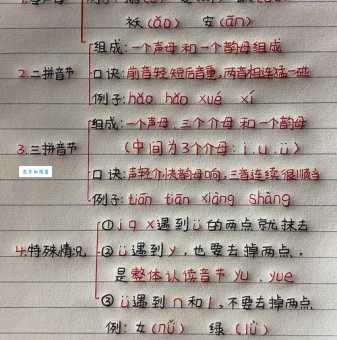 袄（ǎo） 安（ān）
组成：一个声母和一个韵母组成
2.二拼音节
口诀：前音轻短后音重，两音相连猛一碰
例子：hǎo hǎo xué xí
组成：一个声母、三个介母和一个韵母
（中间为3个介母：i.u.ü）
3.三拼音节
口诀：声轻介快韵母响，三音连续很顺当
例子：tiān tiān xiàng shàng
①j q x遇到ü的两点就抹去
4.特殊情况 ②ü遇到y，也要去掉两点，
是整体认读音节yu、yue
③ü遇到n和l，不要去掉两点
例：女（nǚ） 绿（lǜ）